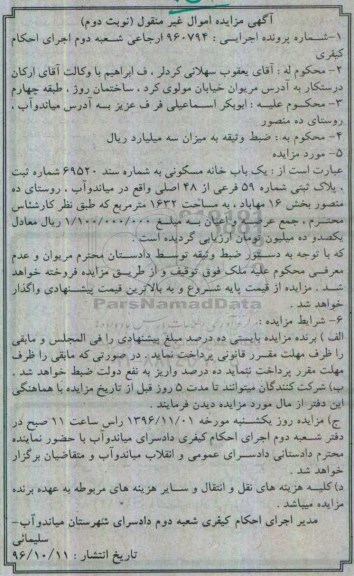 آگهی مزایده اموال غیر منقول (نوبت دوم)
۱-شماره پرونده اجرایی : ۹۶۰۷۹۴ ارجاعی شعبه دوم اجرای احکام
کیفری
۲- محکوم له : آقای یعقوب سهلانی کردلر ، ف ابراهیم با وکالت آقای ارکان
درستکار به آدرس مریوان خیابان مولوی کرد ، ساختمان روژ ، طبقه چهارم
۳- محکوم علیه : ابوبکر اسماعیلی فر ف عزیز به آدرس میاندوآب ،
روستای ده منصور
۴- محکوم به : ضبط وثیقه به میزان سه میلیارد ریال
۵- مورد مزایده
عبارت است از : یک باب خانه مسکونی به شماره سند ۶۹۵۲۰ شماره ثبت
، پلاک ثبتی شماره ۵۹ فرعی از ۴۸ اصلی واقع در میاندوآب ، روستای ده
منصور بخش ۱۶ مهاباد ، به مساحت ۱۶۳۲ مترمربع که طبق نظر کارشناس
محترم ، جمع عرصه و اعیان به مبلغ ۱/۱۰۰/۰۰۰/۰۰۰ ریال معادل
یکصدو ده میلیون تومان ارزیابی گردیده است .
که با توجه به دستور ضبط وثیقه توسط دادستان محترم مریوان و عدم
معرفی محکوم علیه ملک فوق توقیف و از طریق مزایده فروخته خواهد
شد . مزایده از قیمت پایه شروع و به بالاترین قیمت پیشنهادی واگذار
خواهد شد .
۶- شرایط مزایده :
الف ) برنده مزایده بایستی ده درصد مبلغ پیشنهادی را فی المجلس و مابقی
را ظرف مهلت مقرر قانونی پرداخت نماید . در صورتی که مابقی را ظرف
مهلت مقرر پرداخت ننماید ده درصد واریز به نفع دولت ضبط خواهد شد .
ب) شرکت کنندگان میتوانند تا مدت ۵ روز قبل از تاریخ مزایده با هماهنگی
این دفتر از مال مورد مزایده دیدن فرمایند .
ج) مزایده روز یکشنبه مورخه ۱۳۹۶/۱۱/۰۱ راس ساعت ۱۱ صبح در
دفتر شعبه دوم اجرای احکام کیفری دادسرای میاندوآب با حضور نماینده
محترم دادستانی دادسرای عمومی و انقلاب میاندوآب و متقاضیان برگزار
خواهد شد .
د) کلیه هزینه های نقل و انتقال و سایر هزینه های مربوطه به عهده برنده
مزایده میباشد .
مدیر اجرای احکام کیفری شعبه دوم دادسرای شهرستان میاندوآب-
سلیمانی
تاریخ انتشار : ۹۶/۱۰/۱۱
ParsNamadData